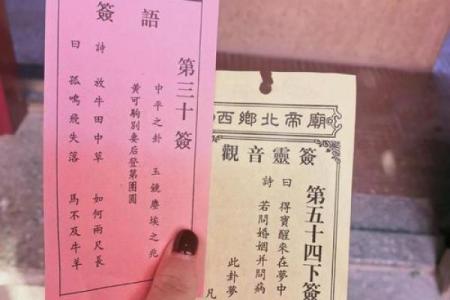 簽語
第三十簽
中平之卦 玉鏡塵埃之兆
黃可駒別妻后登第團圓
詩 放牛田中草 如何兩尺長
曰 孤鳴飛失落 馬不及牛羊
西鄉北帝廟
觀音靈簽
第五十四下簽
詩曰 得寶醒來在夢中
若問婚姻并問病
此卦夢
凡